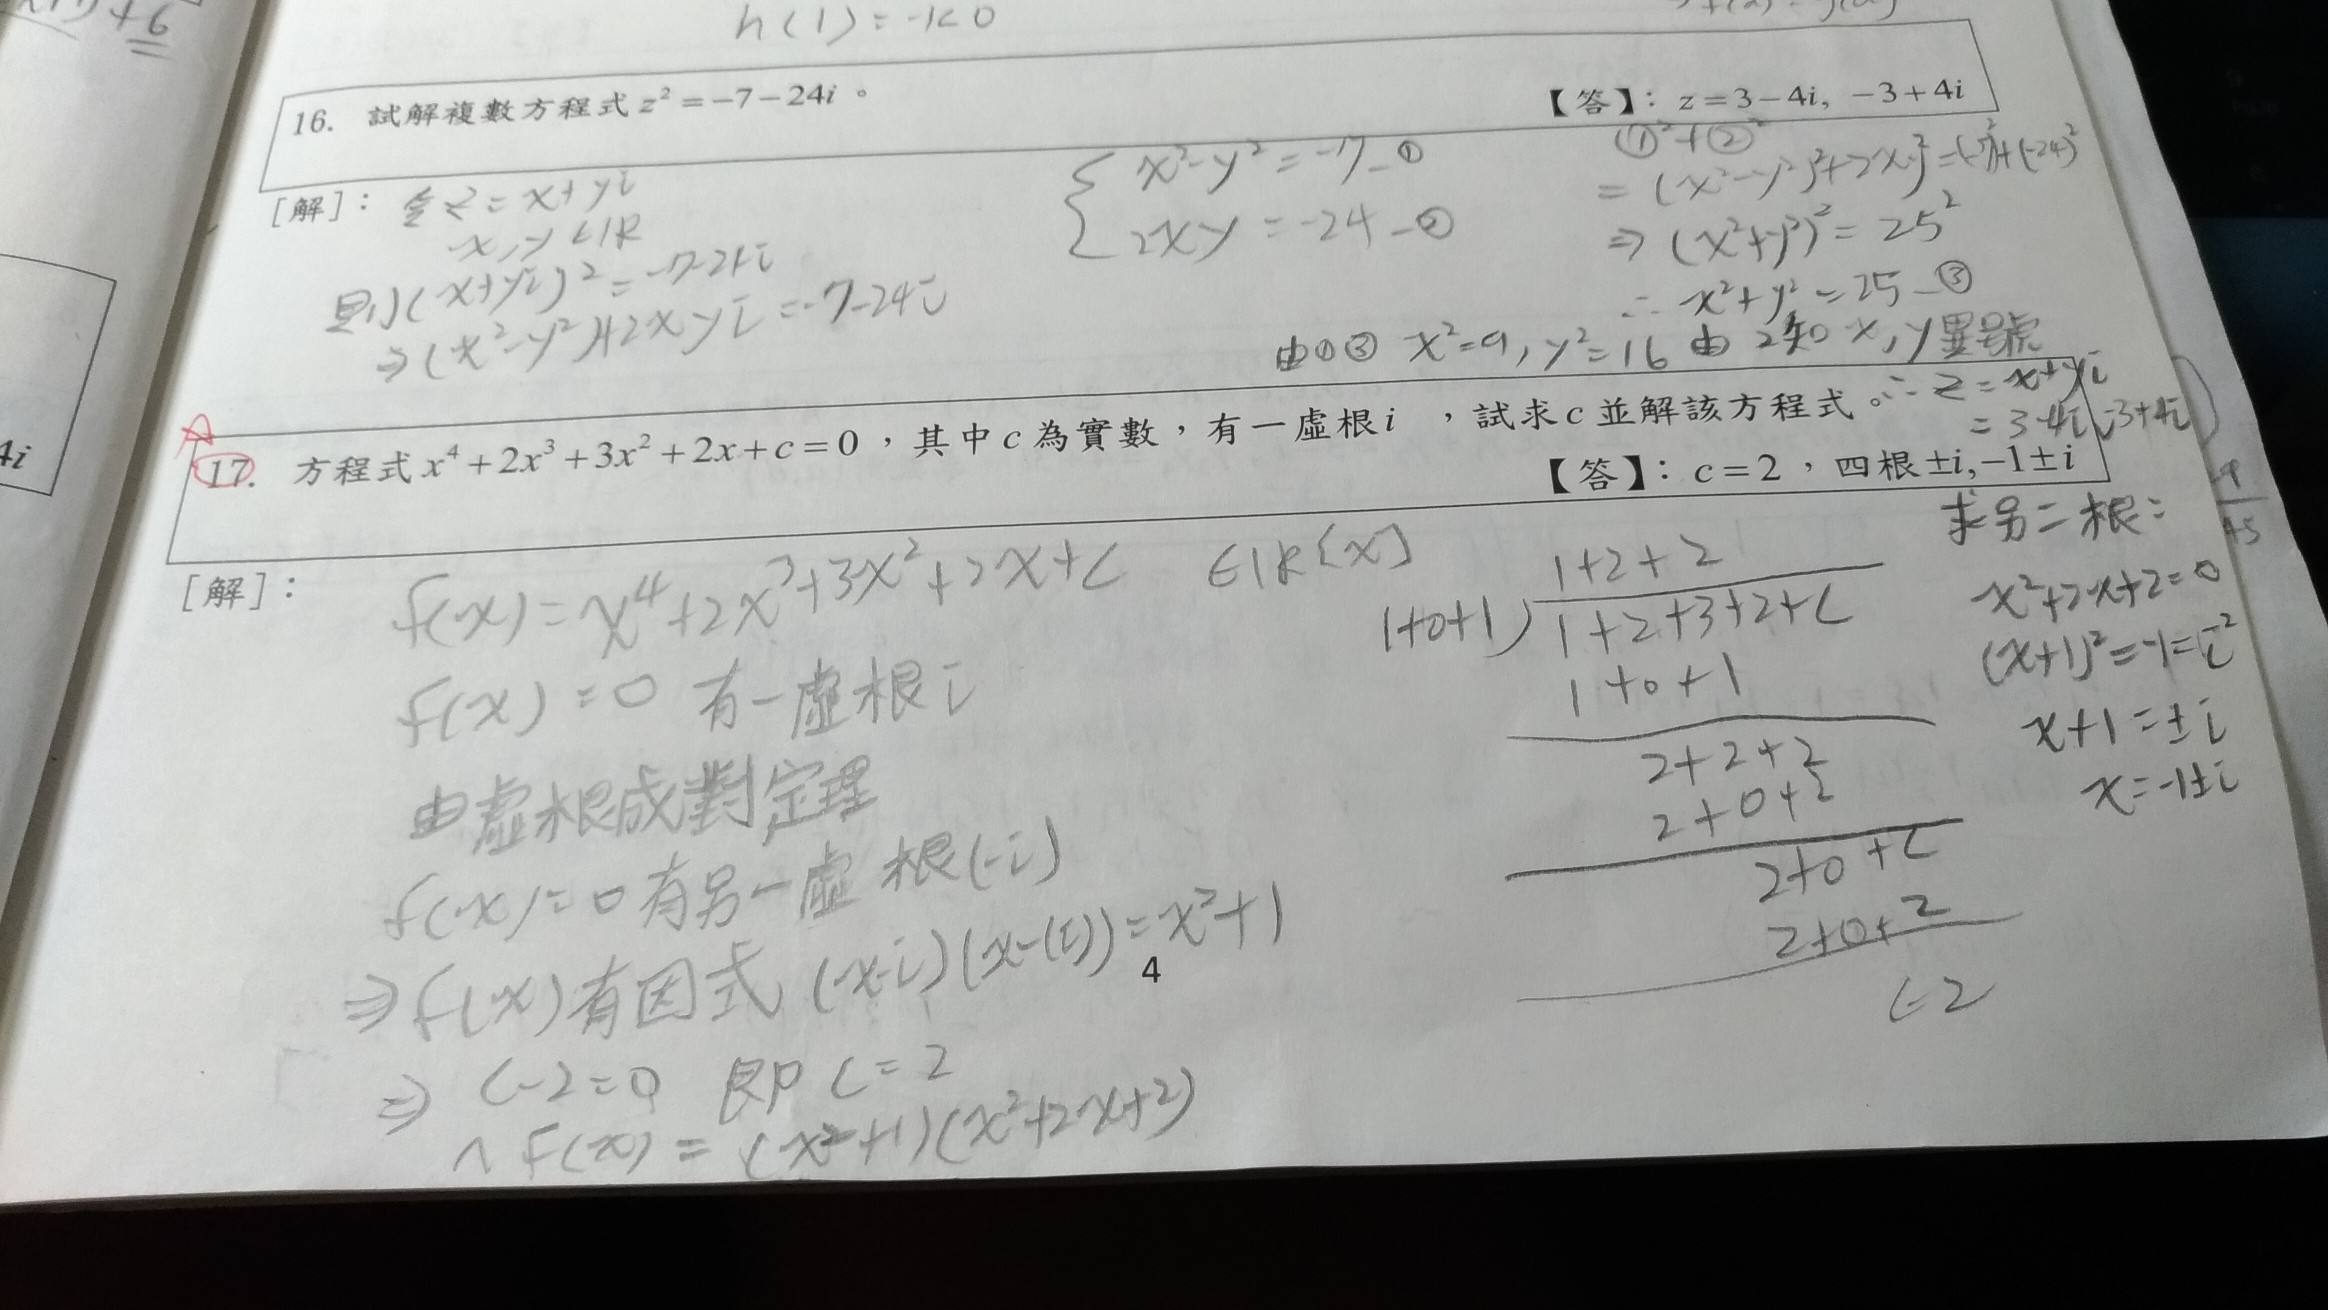 +6
h(1)=-1<0
16. 試解複數方程式 z²=-7-24i。
【答】: z=3-4i, -3+4i
[解]: 令z=x+yi
x,y∈IR
則(x+yi)²=-7-24i
⇒(x²-y²)+2xyi=-7-24i
x²-y²=-7-①
2xy=-24-②
①²+②²
=(x²-y²)²+(2xy)²=(-7)²+(-24)²
⇒(x²+y²)²=25²
∴x²+y²=25-③
由①③ x²=9,y²=16 由2知x,y異號
∴z=x+yi
=3-4i,-3+4i
4i
17. 方程式 x⁴+2x³+3x²+2x+c=0,其中c為實數,有一虛根i ,試求c並解該方程式。
【答】: c=2,四根±i,-1±i
[解]:
f(x)=x⁴+2x³+3x²+2x+c ∈IR[x]
f(x)=0 有一虛根i
由虛根成對定理
f(x)=0有另一虛根(-i)
⇒f(x)有因式(x-i)(x-(i))=x²+1
⇒c-2=0 即c=2
∧f(x)=(x²+1)(x²+2x+2)
1+2+2
1+0+1)1+2+3+2+c
1+0+1
2+2+2
2+0+2
2+0+c
2+0+2
c-2
求另二根:
x²+2x+2=0
(x+1)²=-1=i²
x+1=±i
x=-1±i
4